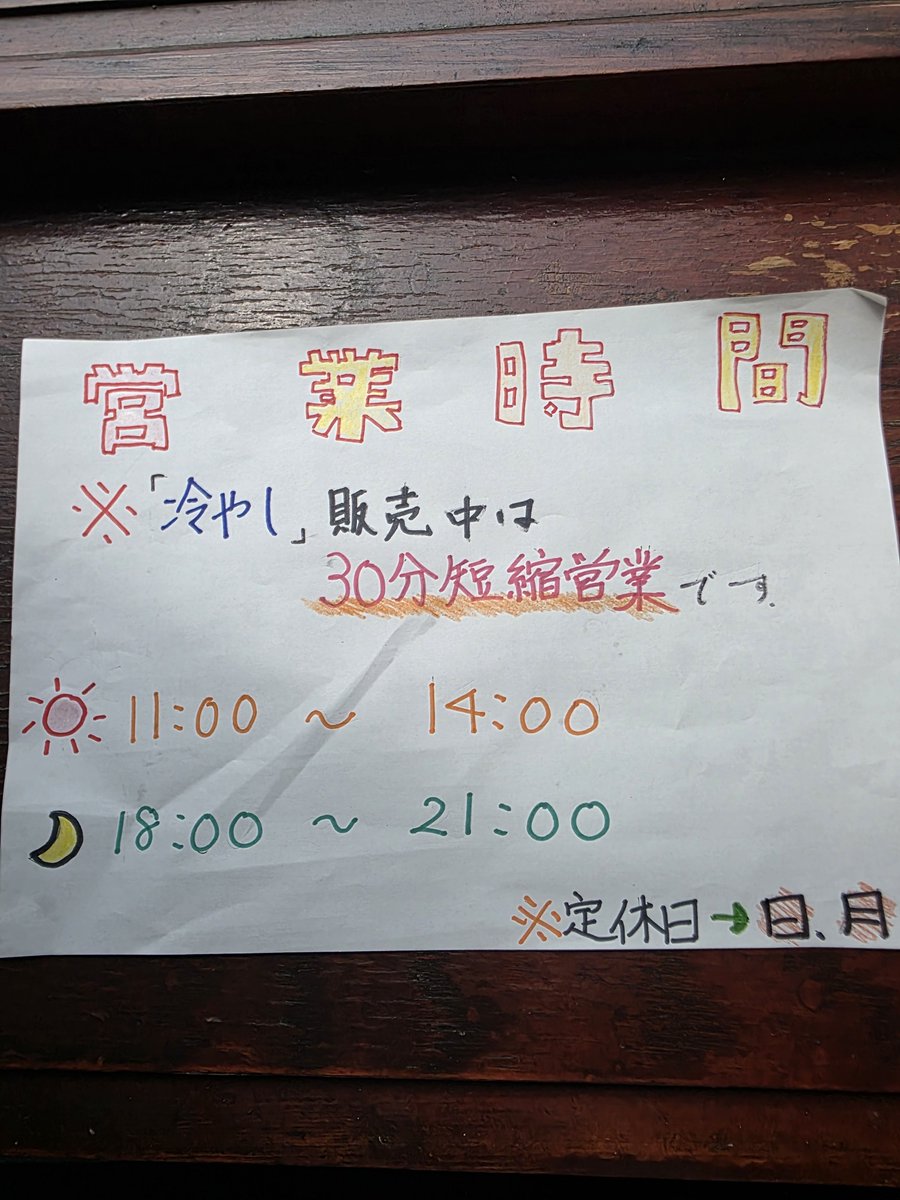 営業時間
※「冷やし」販売中は
30分短縮営業です.
11:00 ～ 14:00
18:00 ～ 21:00
※定休日→日、月